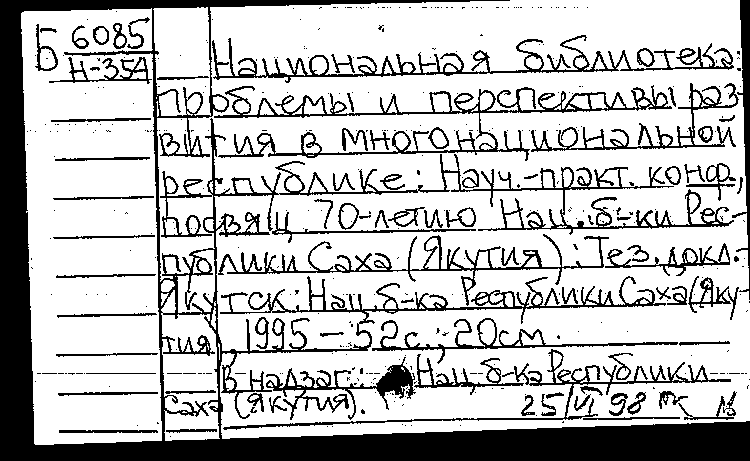 Б 6085
Н-354
Национальная библиотека:
проблемы и перспективы раз-
вития в многонациональной
республике: Науч.-практ. конф.,
посвящ. 70-летию Нац. б-ки Рес-
публики Саха (Якутия): Тез. докл.-
Якутск: Нац. б-ка Республики Саха (Яку-
тия), 1995 – 52 с.; 20 см.
В надзаг.: Нац. б-ка Республики
Саха (Якутия). 25/VI 98